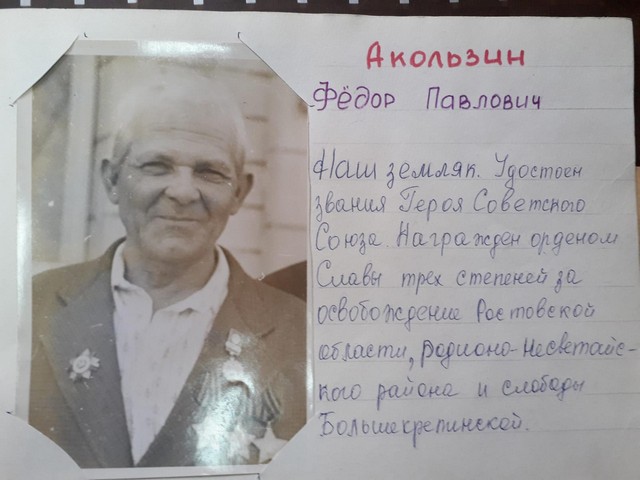 Акользин
Фёдор Павлович
Наш земляк. Удостоен
звания Героя Советского
Союза. Награжден орденом
Славы трех степеней за
освобождение Ростовской
области, Родионо-Несветайс-
кого района и слободы
Большекрепинской.